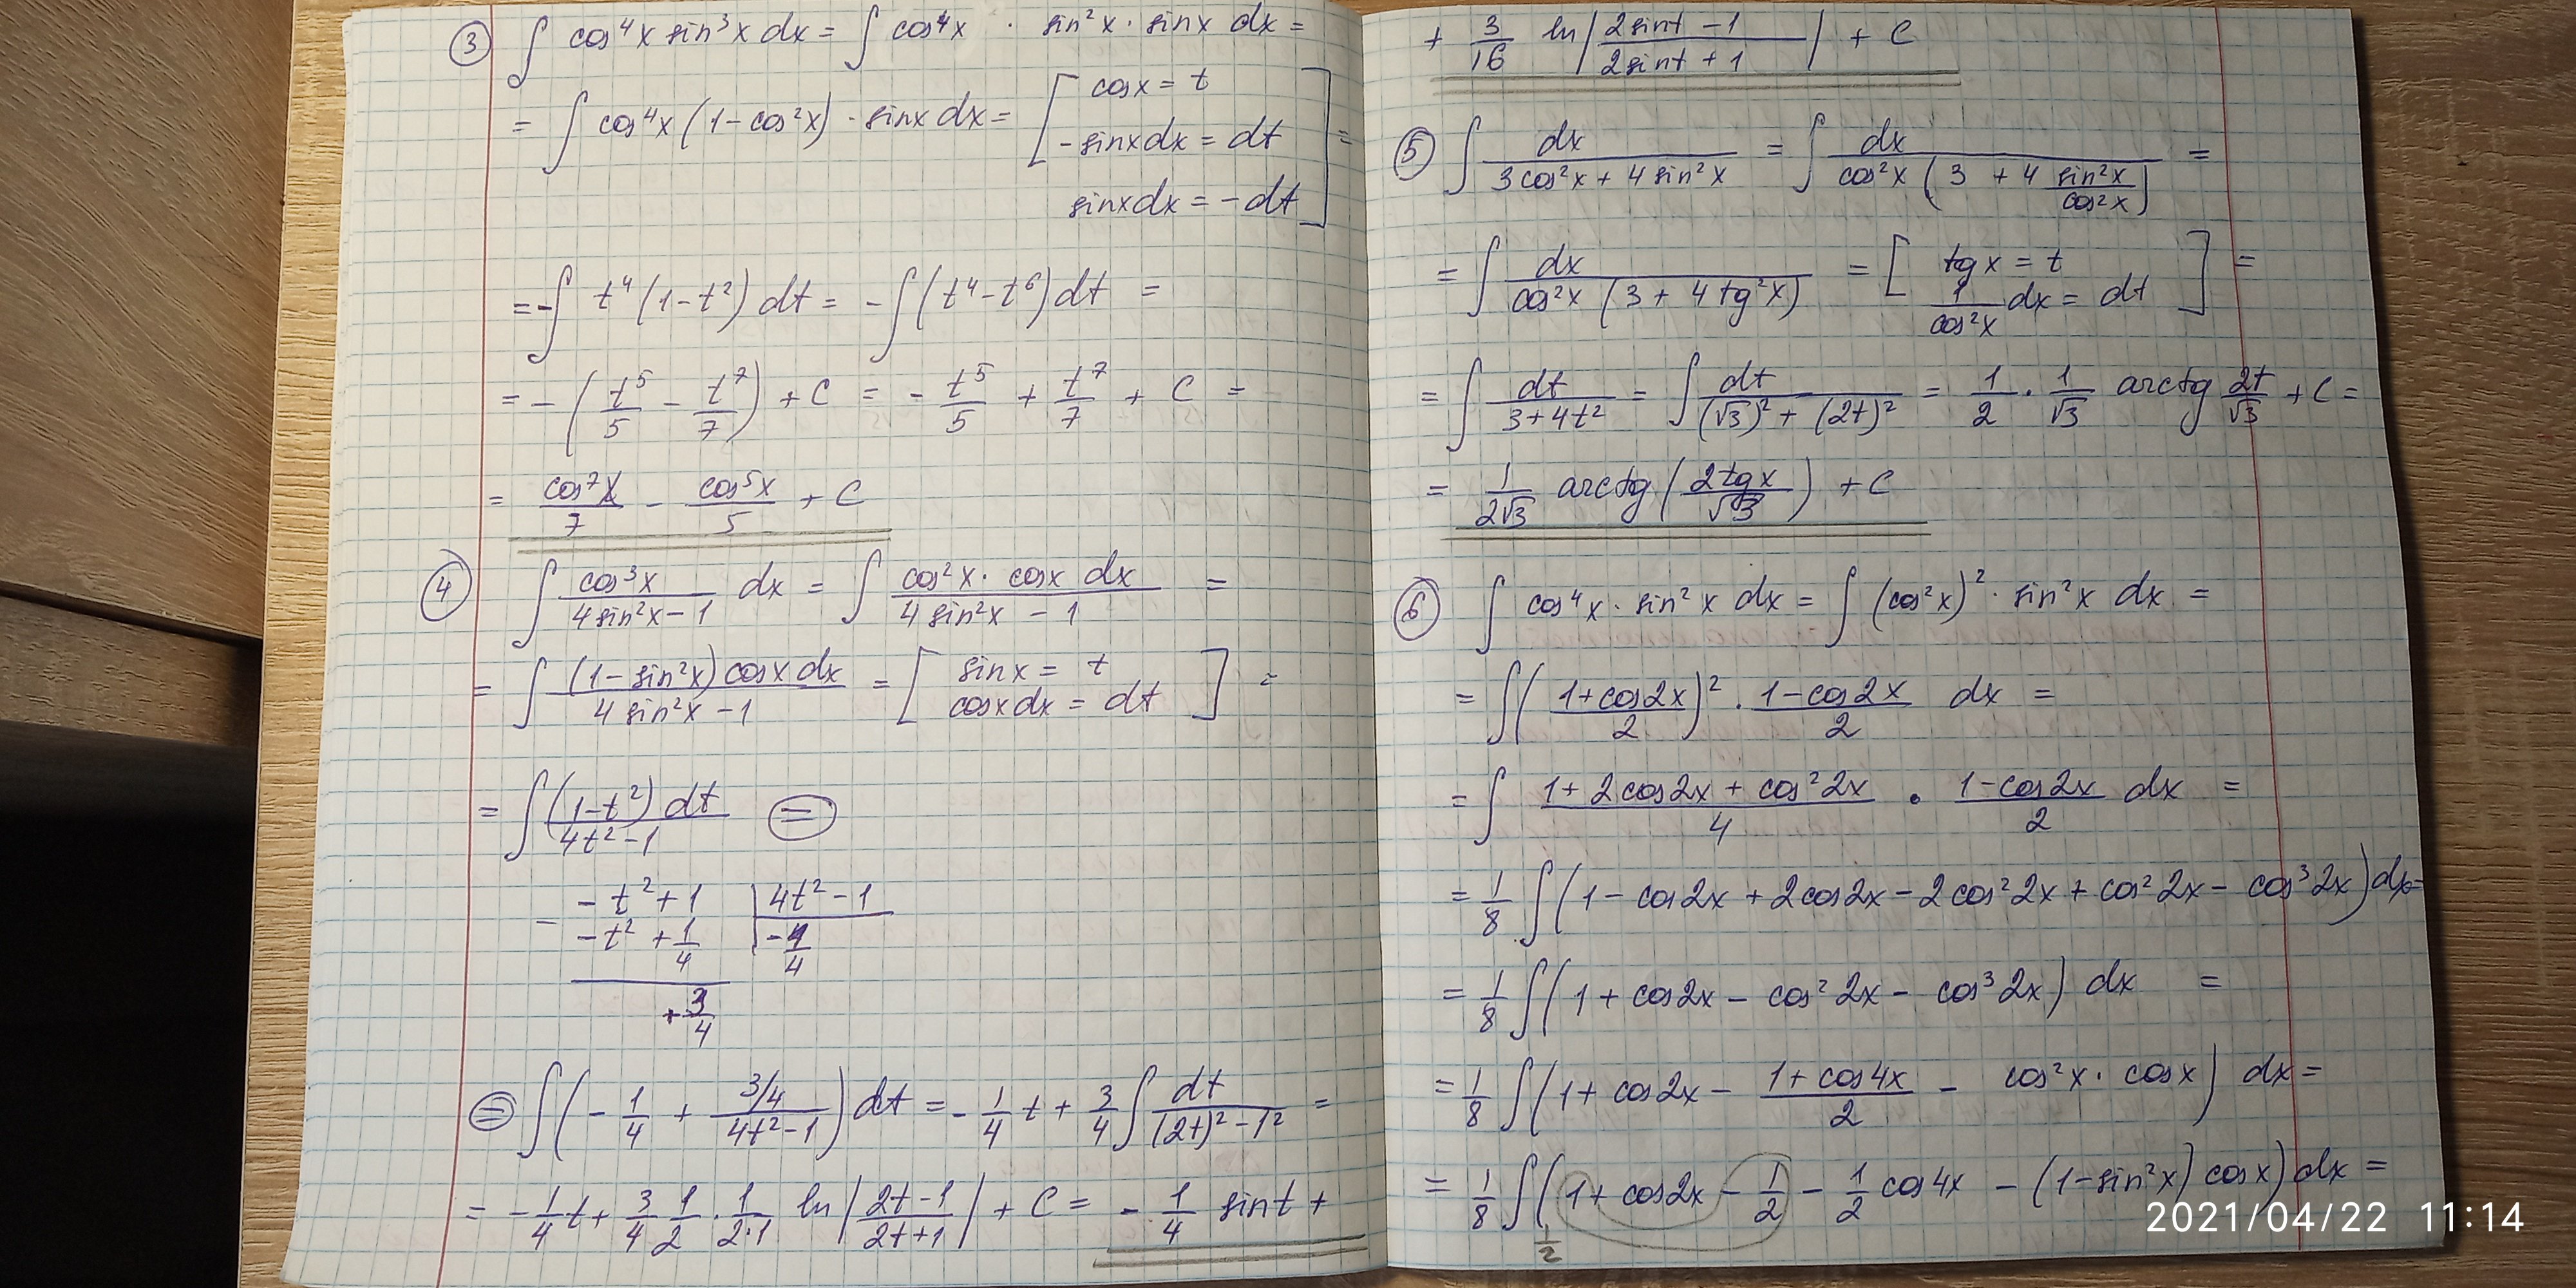 ③ ∫ cos⁴x sin³x dx = ∫ cos⁴x · sin²x · sinx dx =
= ∫ cos⁴x (1-cos²x) · sinx dx = [ cosx = t
-sinxdx = dt
sinxdx = -dt ] =
= -∫ t⁴(1-t²) dt = -∫(t⁴-t⁶)dt =
= -(t⁵/5 - t⁷/7) + C = -t⁵/5 + t⁷/7 + C =
= cos⁷x/7 - cos⁵x/5 + C
④ ∫ cos³x/(4sin²x-1) dx = ∫ cos²x · cosx dx/(4sin²x - 1) =
= ∫ (1-sin²x)cosx dx/(4sin²x-1) = [ sinx = t
cosxdx = dt ] =
= ∫ (1-t²)dt/(4t²-1) ⊜
- -t²+1 | 4t²-1
-t² + 1/4 | -1/4
+3/4
⊜ ∫(-1/4 + (3/4)/(4t²-1))dt = -1/4 t + 3/4 ∫ dt/((2t)²-1²) =
= -1/4 t + 3/4 1/2 · 1/(2·1) ln|(2t-1)/(2t+1)| + C = -1/4 sint +
+ 3/16 ln|(2sint-1)/(2sint+1)| + C
⑤ ∫ dx/(3cos²x+4sin²x) = ∫ dx/(cos²x(3 + 4 sin²x/cos²x)) =
= ∫ dx/(cos²x(3+4tg²x)) = [ tgx = t
1/cos²x dx = dt ] =
= ∫ dt/(3+4t²) = ∫ dt/((√3)²+(2t)²) = 1/2 · 1/√3 arctg 2t/√3 + C =
= 1/(2√3) arctg(2tgx/√3) + C
⑥ ∫ cos⁴x · sin²x dx = ∫(cos²x)² · sin²x dx =
= ∫((1+cos2x)/2)² · (1-cos2x)/2 dx =
= ∫ (1+2cos2x+cos²2x)/4 · (1-cos2x)/2 dx =
= 1/8 ∫(1-cos2x+2cos2x-2cos²2x+cos²2x-cos³2x)dx=
= 1/8 ∫(1+cos2x-cos²2x-cos³2x) dx =
= 1/8 ∫(1+cos2x - (1+cos4x)/2 - cos²x · cosx) dx =
= 1/8 ∫(1+cos2x - 1/2 - 1/2 cos4x - (1-sin²x)cosx)dx =
1/2
2021/04/22 11:14